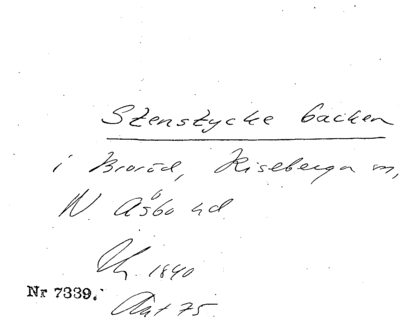 Stenstycke backen
i Broröd, Riseberga sn,
N. Åsbo hd
Uh. 1840
Nr 7339.
Ant 75.